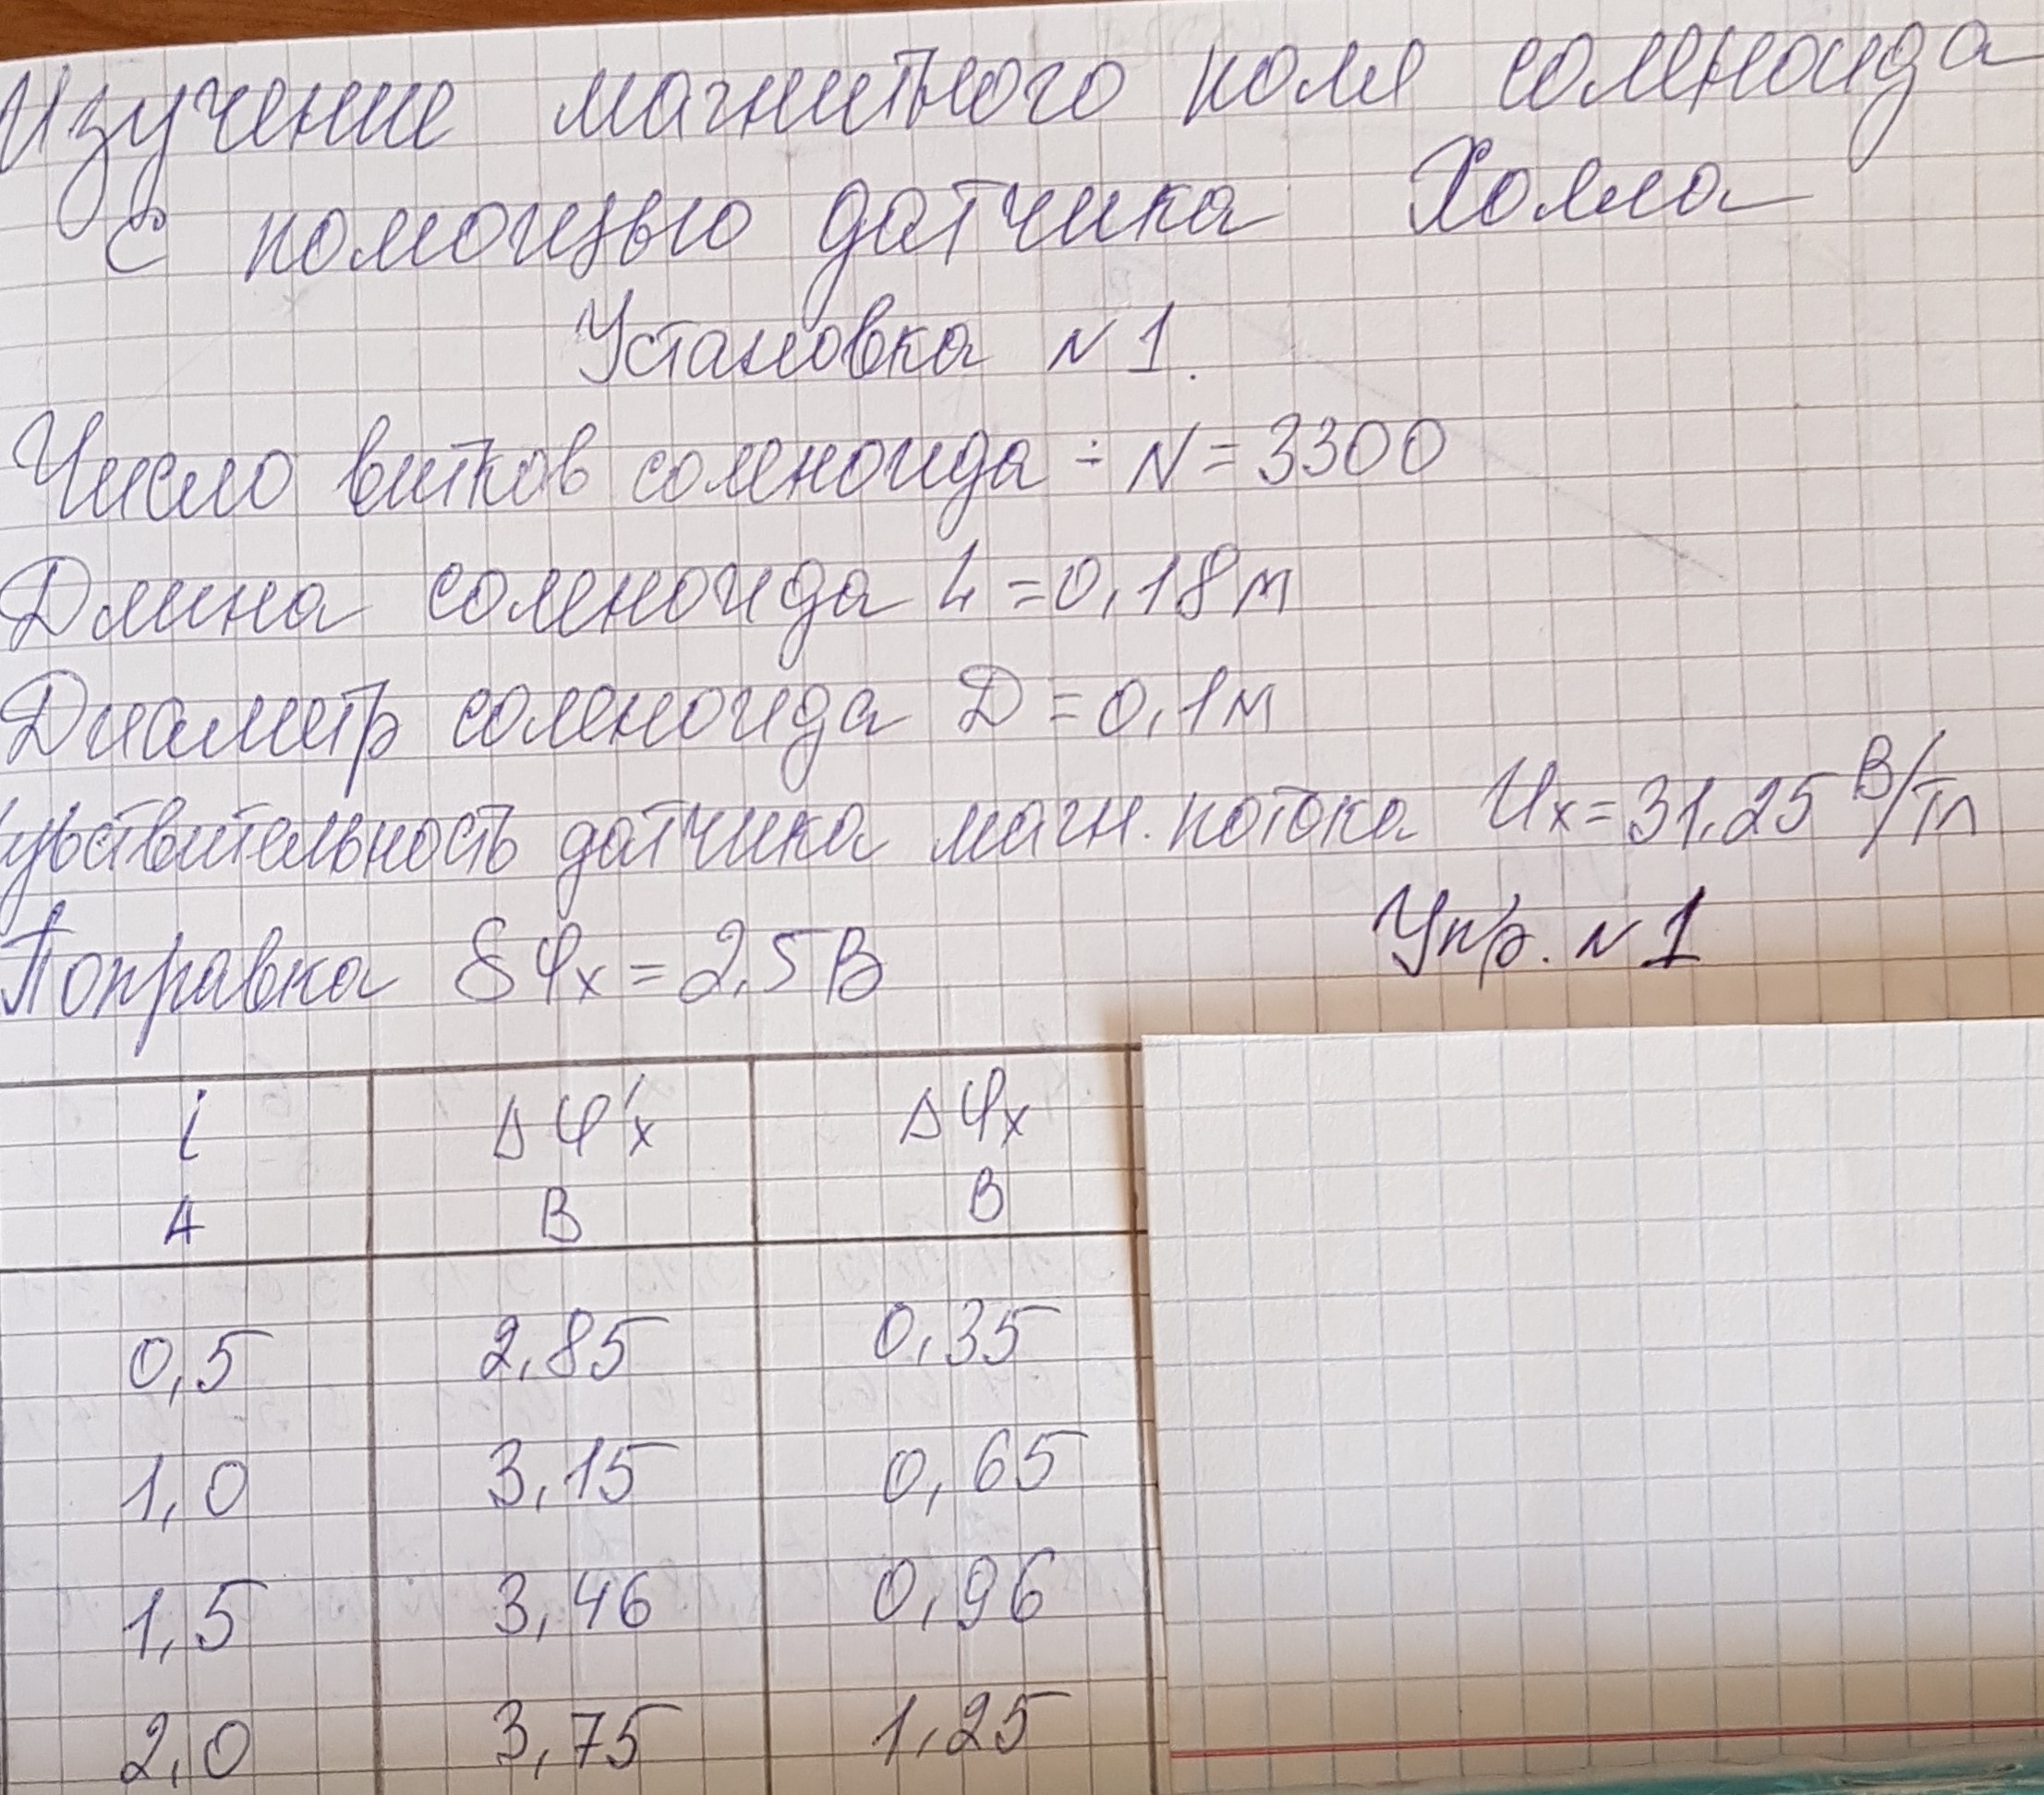 Изучение магнитного поля соленоида
с помощью датчика Холла
Установка N1.
Число витков соленоида ÷ N = 3300
Длина соленоида L = 0,18 м
Диаметр соленоида D = 0,1 м
увствительность датчика магн. потока Uх = 31,25 В/Тл
Поправка δφх = 2,5 В Упр. N1
i Δφ'х Δφх
А В В
0,5 2,85 0,35
1,0 3,15 0,65
1,5 3,46 0,96
2,0 3,75 1,25